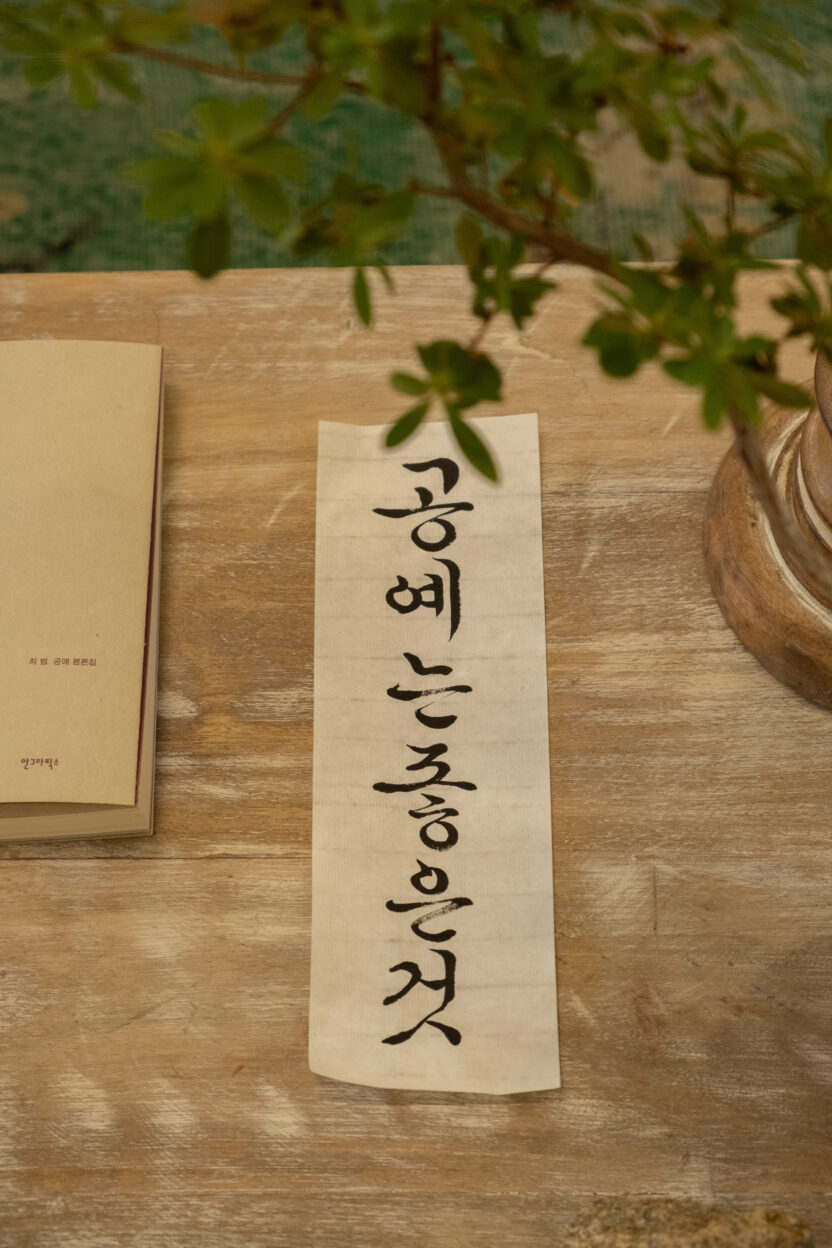 최 범 공예 평론집
안그라픽스
공예는좋은것